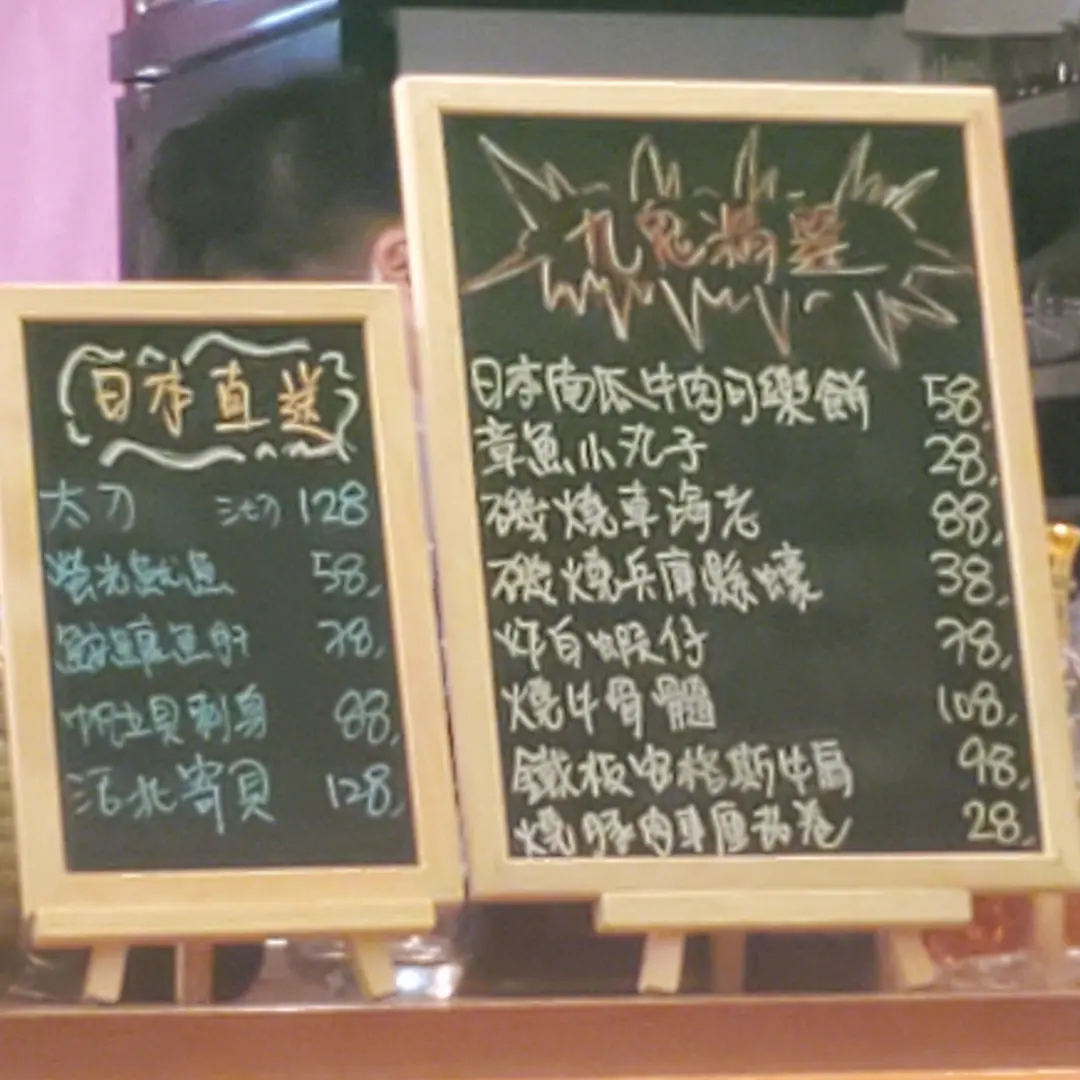 日本直送
太刀 128
螢光魷魚 58,
78,
帆立貝刺身 88,
活北寄貝 128,
九鬼
日本南瓜牛肉可樂餅 58,
章魚小丸子 28,
磯燒車海老 88,
磯燒兵庫縣蠔 38,
炸白蝦仔 78,
燒牛骨髓 108,
鐵板安格斯牛肩 98,
燒豚肉 卷 28,